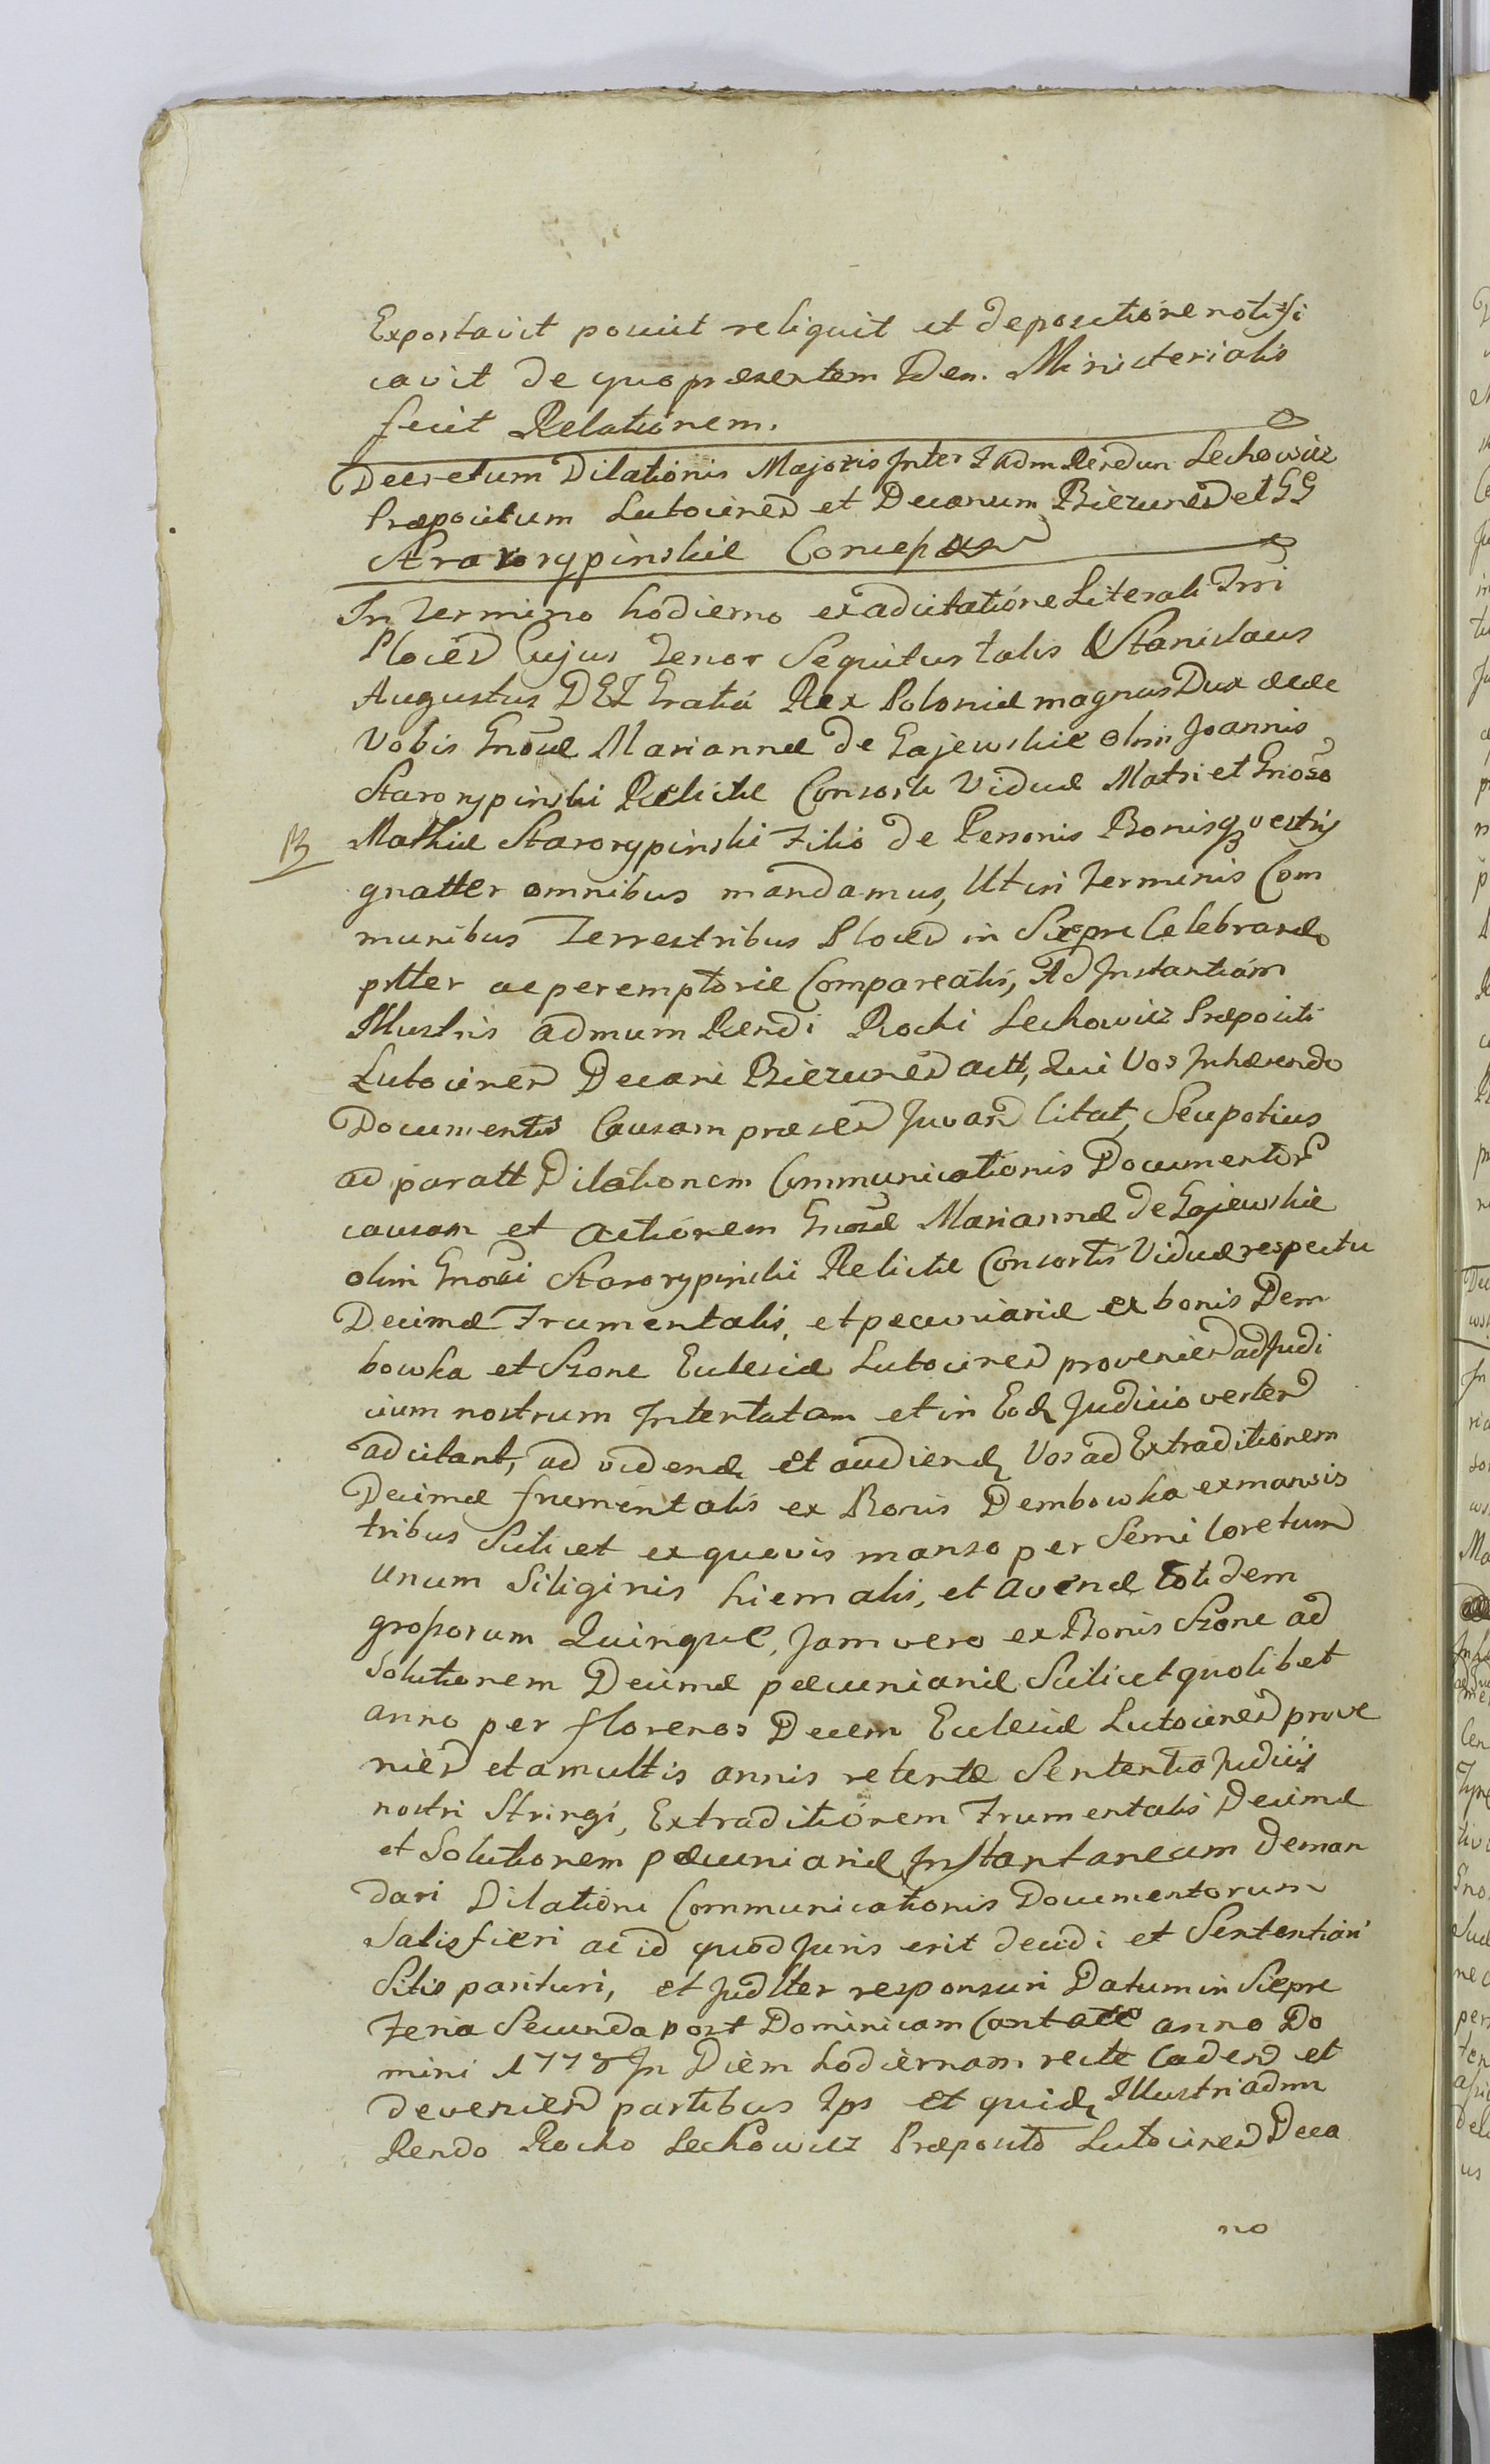 Exportavit posuit reliquit et depositione notifi
cavit de quo præsentem Iden. Ministerialis
fecit Relationem.
Decretum Dilationis Majoris Inter I adm Rendun Lechowicz
Præpositum Lutocinen et Decanum Biezunen et GG
Starorypinskie Concepta
In Termino hodierno ex adcitatione Literali Trri
Plocen Cujus Tenor Sequitur talis Stanislaus
Augustus DEI Gratia Rex Poloniæ magnus Dux &c&c
Vobis Gnosæ Mariannæ de Gajewskie olim Joannis
Starorypinski Relictæ Consorti Viduæ Matri et Gnoso
B Mathiæ Starorypinski Filio de Personis Bonisq vestris
gnatter omnibus mandamus, Ut in Terminis Com
munibus Terrestribus Plocen in Sierpc Celebrand
pntter ac peremptorie Compareatis, Ad Instantiam
Illustris admum Rendi Rochi Lechowicz Præpositi
Lutocinen Decani Biezunen actt, Qui Vos Inhærendo
Documentis Causam præsen Juvan Citat, Seu potius
ad paratt Dilationem Communicationis Documentor
causam et actionem Gnosæ Mariannæ de Gajewskie
olim Gnosi Starorypinski Relictæ Consortis Viduæ respectu
Decimæ Frumentalis, et pecuniariæ ex bonis Dem
bowka et Szone Ecclesiæ Lutocinen provenien ad Judi
cium nostrum Intentatam et in Eod Judicio verten
adcitant, ad videnđ et audienđ Vos ad Extraditionem
Decimæ frumentalis ex Bonis Dembowka ex mansis
tribus Scilicet ex quovis manso per Semi Coretum
Unum Siliginis hiemalis, et Avenæ totidem
grossorum Quinque, Jam vero ex Bonis Szone ad
Solutionem Decimæ pecuniariæ Scilicet quolibet
anno per florenos Decem Ecclesiæ Lutocinen prove
nien et a multis annis retentæ Sententia Judicij
nostri Stringi, Extraditionem Frumentalis Decimæ
et Solutionem pecuniariæ Instantaneam deman
dari Dilationi Communicationis Documentorum
Satisfieri ac id quod Juris erit decidi et Sententiari
Sitis parituri, et Judtter responsuri Datum in Sierpc
Feria Secunda post Dominicam Cantate anno Do
mini 1778 In Diem hodiernam recte Caden et
devenien partibus Ips et quiđ Illustri adm
Rendo Rocho Lechowicz Præposito Lutocinen Deca
no